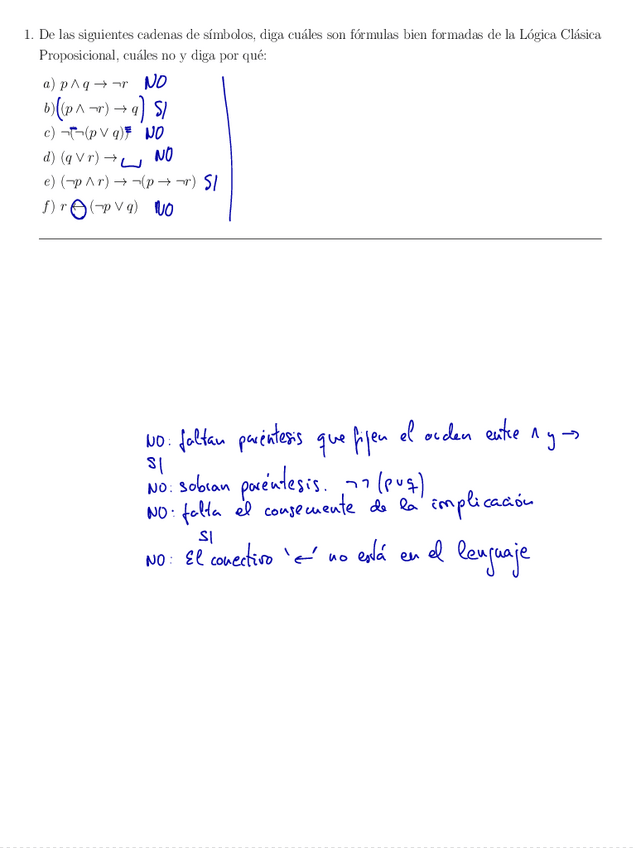 1. De las siguientes cadenas de símbolos, diga cuáles son fórmulas bien formadas de la Lógica Clásica
Proposicional, cuáles no y diga por qué:
a) p ∧ q → ¬r NO
b) ((p ∧ ¬r) → q) SI
c) ¬(¬(p ∨ q)) NO
d) (q ∨ r) → NO
e) (¬p ∧ r) → ¬(p → ¬r) SI
f) r ← (¬p ∨ q) NO
NO: faltan paréntesis que fijen el orden entre ∧ y →
SI
NO: sobran paréntesis. ¬¬(p∨q)
NO: falta el consecuente de la implicación
SI
NO: El conectivo '←' no está en el lenguaje